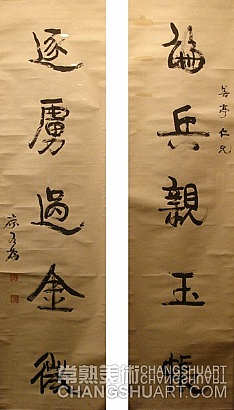 善亭仁兄
論兵親玉帳
逐虜過金微
康有為
常熟美術
CHANGSHUART
CHANGSHUART.COM